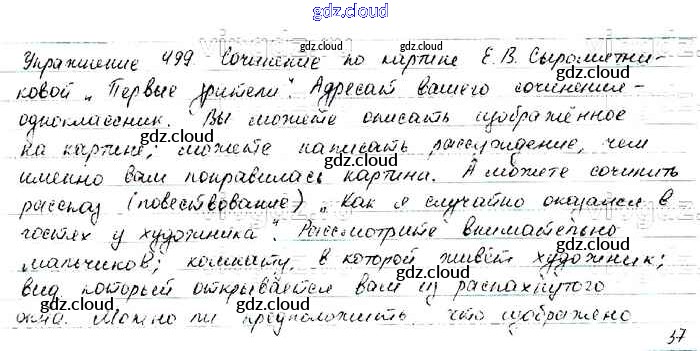 gdz.cloud
Упражнение 499. Сочинение по картине Е.В. Сыромятни-
ковой „Первые зрители". Адресат вашего сочинения -
одноклассник. Вы можете описать изображённое
на картине; можете написать рассуждение, чем
именно вам понравилась картина. А можете сочинить
рассказ (повествование) „Как я случайно оказался в
гостях у художника". Рассмотрите внимательно
мальчиков; комнату, в которой живёт художник;
вид, который открывается вам из распахнутого
окна. Можно ли предположить что изображено
37